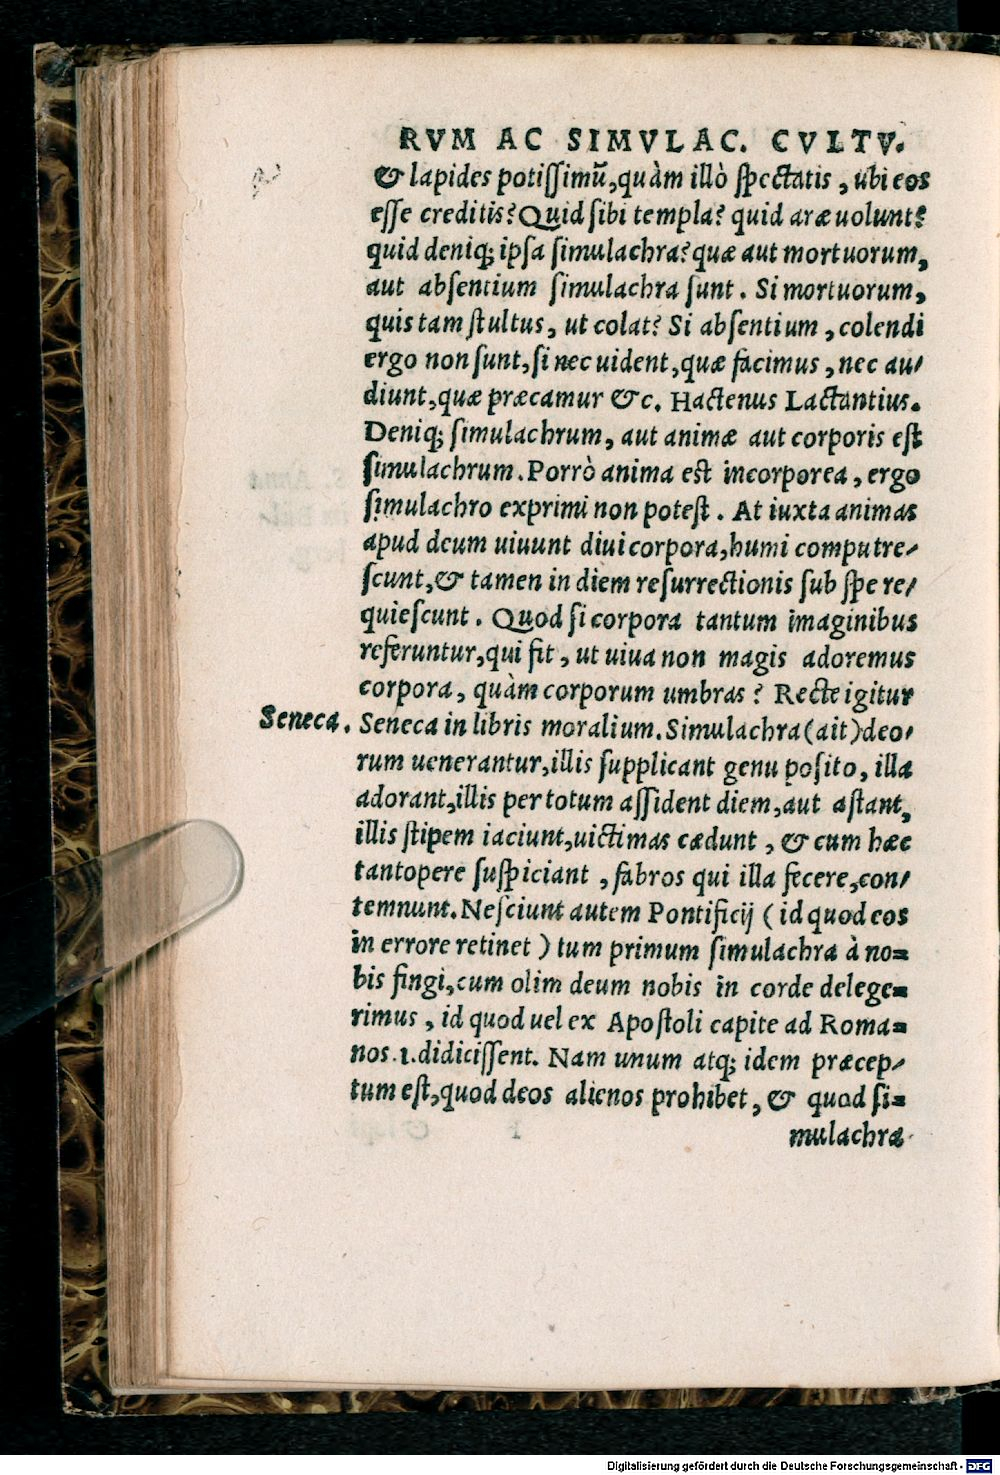 RVM AC SIMVLAC. CVLTV.
& lapides potissimũ, quàm illò spectatis, ubi eos
esse creditis? Quid sibi templa? quid aræ uolunt?
quid deniq; ipsa simulachra? quæ aut mortuorum,
aut absentium simulachra sunt. Si mortuorum,
quis tam stultus, ut colat? Si absentium, colendi
ergo non sunt, si nec uident, quæ facimus, nec au/
diunt, quæ præcamur &c. Hactenus Lactantius.
Deniq; simulachrum, aut animæ aut corporis est
simulachrum. Porrò anima est incorporea, ergo
simulachro exprimi non potest. At iuxta animas
apud deum uiuunt diui corpora, humi computre/
scunt, & tamen in diem resurrectionis sub spe re/
quiescunt. Quod si corpora tantum imaginibus
referuntur, qui fit, ut uiua non magis adoremus
corpora, quàm corporum umbras? Recte igitur
Seneca. Seneca in libris moralium. Simulachra (ait) deo/
rum uenerantur, illis supplicant genu posito, illa
adorant, illis per totum assident diem, aut astant,
illis stipem iaciunt, uictimas cædunt, & cum hæc
tantopere suspiciant, fabros qui illa fecere, con/
temnunt. Nesciunt autem Pontificij (id quod eos
in errore retinet) tum primum simulachra à no=
bis fingi, cum olim deum nobis in corde delege=
rimus, id quod uel ex Apostoli capite ad Roma=
nos .1. didicissent. Nam unum atq; idem præcep/
tum est, quod deos alienos prohibet, & quod si=
mulachra
Digitalisierung gefördert durch die Deutsche Forschungsgemeinschaft - DFG